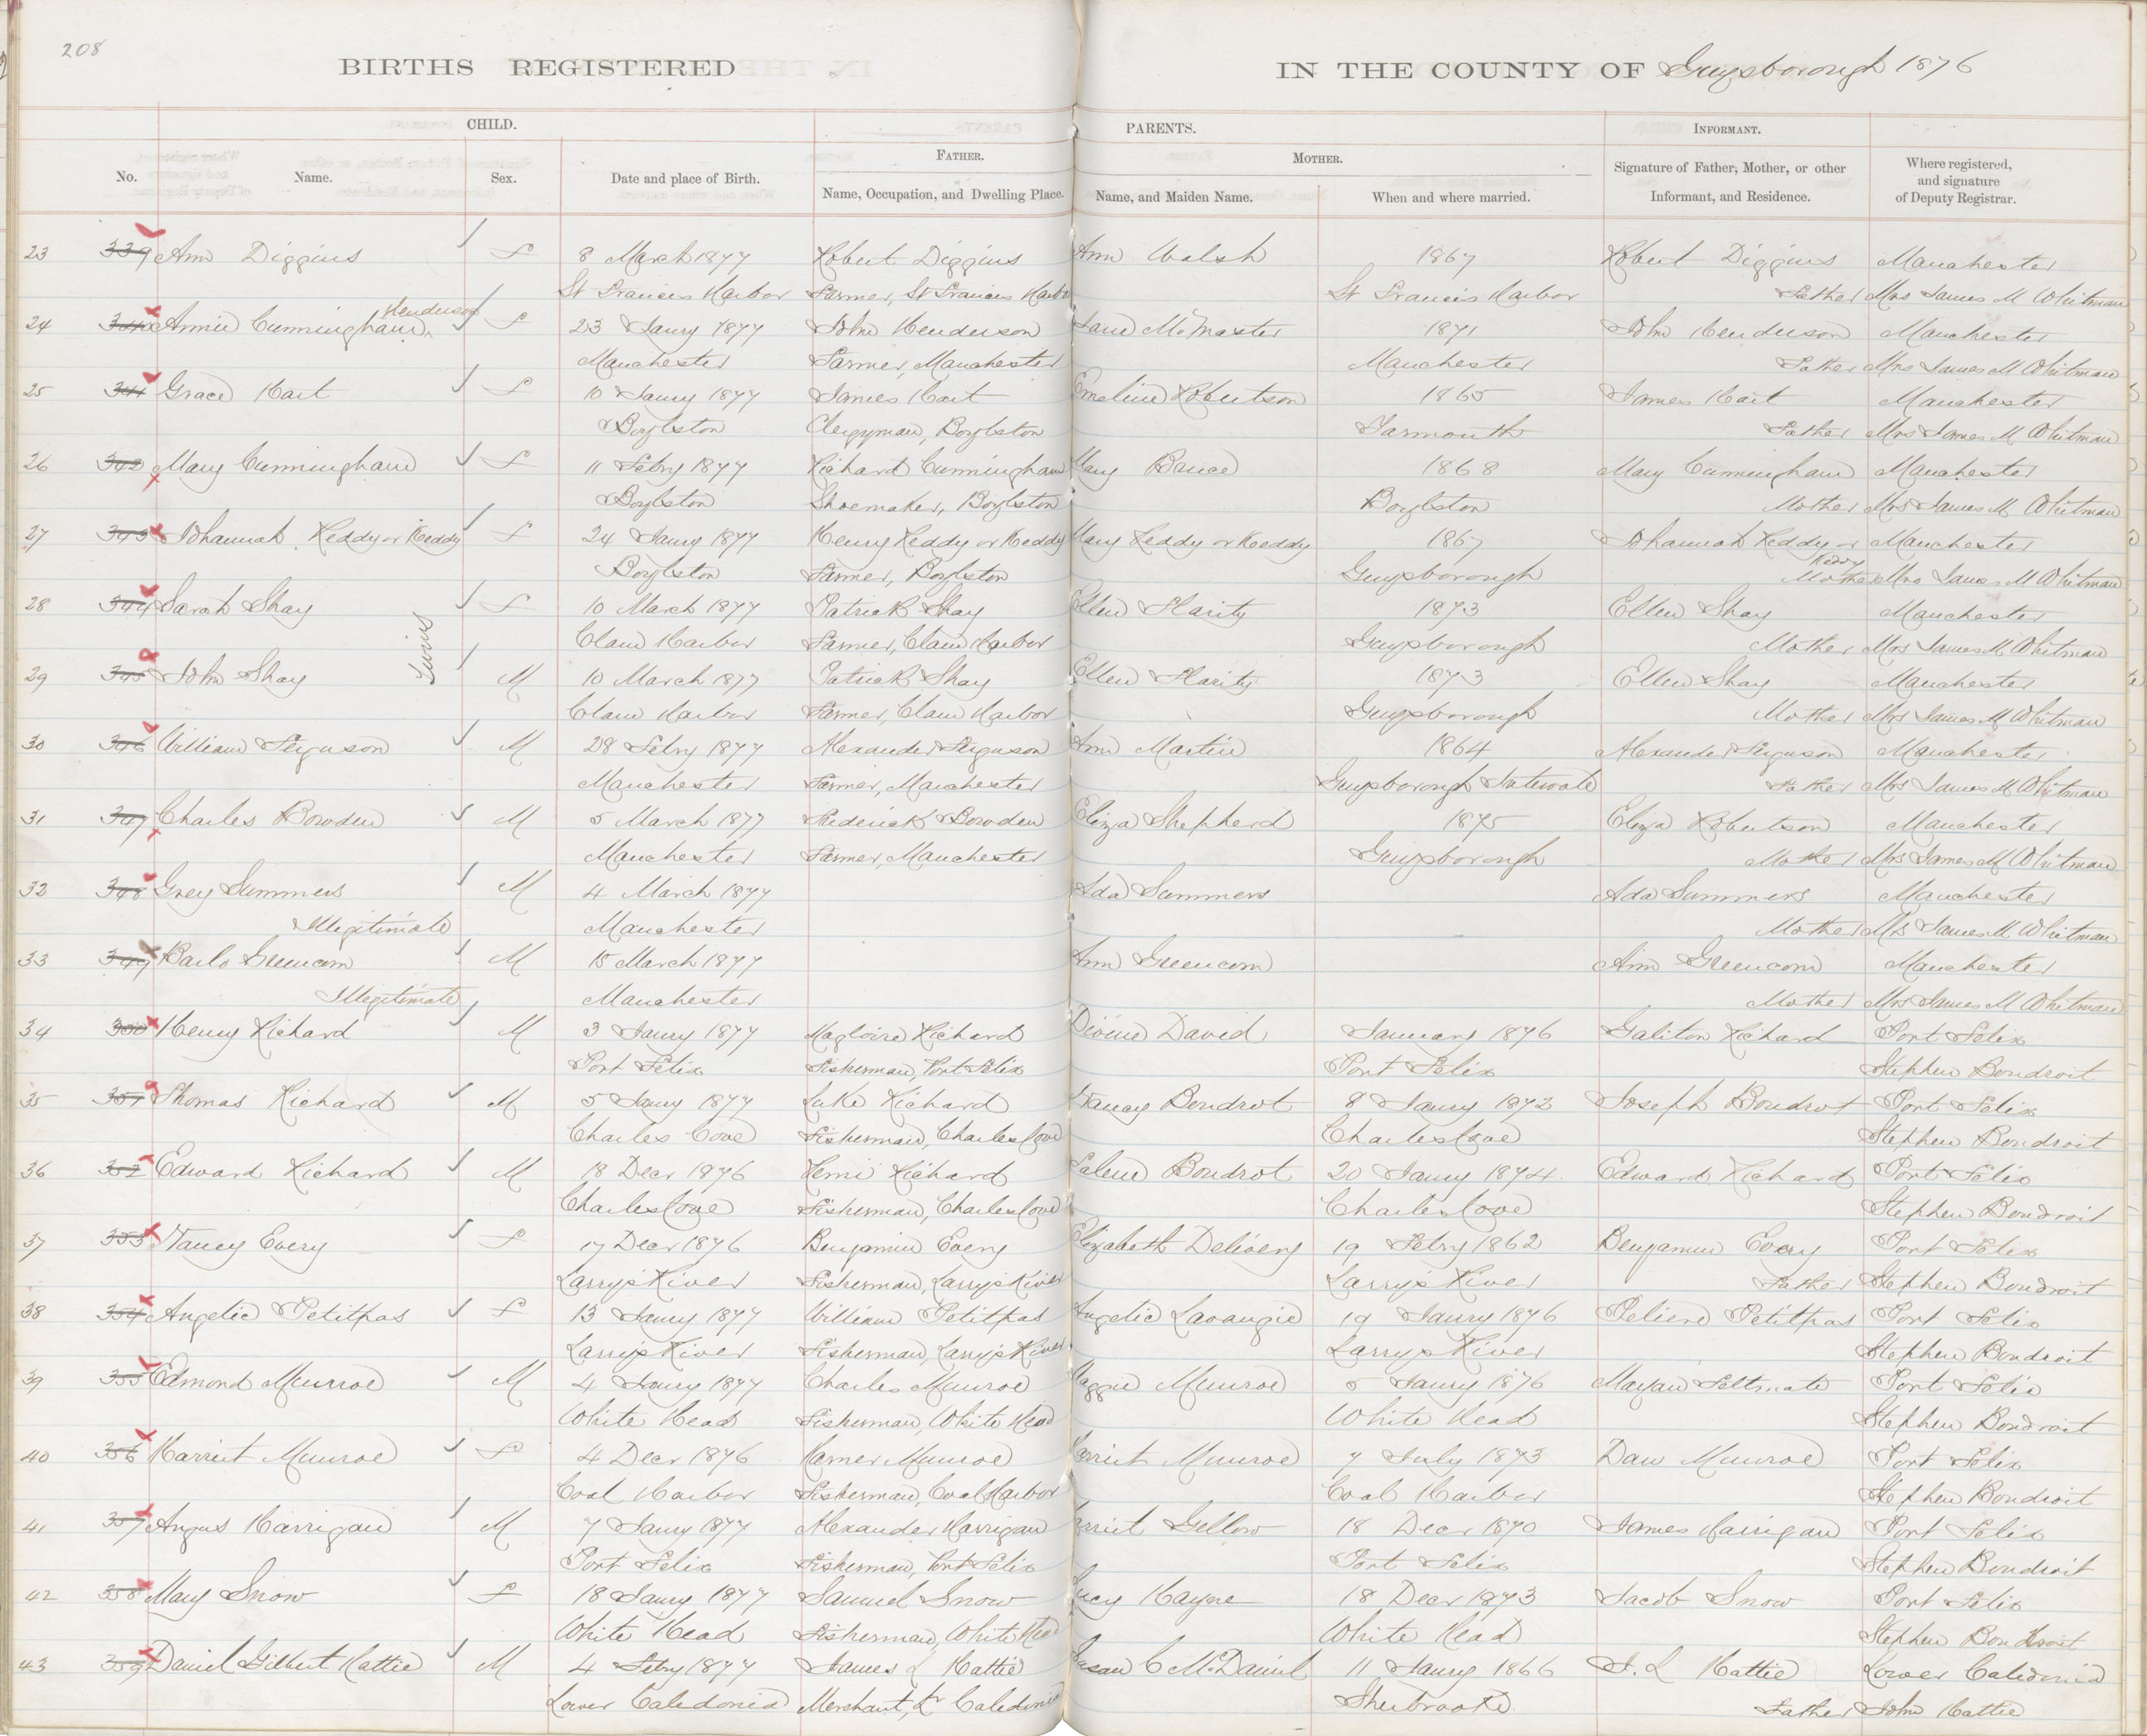 208
BIRTHS REGISTERED IN THE COUNTY OF Guysborough 1876
CHILD. PARENTS. INFORMANT.
FATHER. MOTHER.
No. Name. Sex. Date and place of Birth. Name, Occupation, and Dwelling Place. Name, and Maiden Name. When and where married. Signature of Father, Mother, or other Informant, and Residence. Where registered, and signature of Deputy Registrar.
23 339 Ann Diggins f 8 March 1877 Robert Diggins Ann Walsh 1867 Robert Diggins Manchester
St Francis Harbor Farmer, St Francis Harbor St Francis Harbor Father Mrs James M Whitman
24 340 Annie Cunningham Henderson f 23 Jany 1877 John Henderson Jane McMaster 1871 John Henderson Manchester
Manchester Farmer, Manchester Manchester Father Mrs James M Whitman
25 341 Grace Hart f 10 Jany 1877 James Hart Emeline Robertson 1865 James Hart Manchester
Boylston Clergyman, Boylston Yarmouth Father Mrs James M Whitman
26 342 Mary Cunningham f 11 Febry 1877 Richard Cunningham Mary Bruce 1868 Mary Cunningham Manchester
Boylston Shoemaker, Boylston Boylston Mother Mrs James M Whitman
27 343 Johannah Reddy or Keddy f 24 Jany 1877 Henry Reddy or Keddy Mary Reddy or Keddy 1867 Johannah Reddy or Keddy Manchester
Boylston Farmer, Boylston Guysborough Mother Mrs James M Whitman
28 344 Sarah Shay Twins f 10 March 1877 Patrick Shay Ellen Flarity 1873 Ellen Shay Manchester
Clam Harbor Farmer, Clam Harbor Guysborough Mother Mrs James M Whitman
29 345 John Shay M 10 March 1877 Patrick Shay Ellen Flarity 1873 Ellen Shay Manchester
Clam Harbor Farmer, Clam Harbor Guysborough Mother Mrs James M Whitman
30 346 William Ferguson M 28 Febry 1877 Alexander Ferguson Ann Martin 1864 Alexander Ferguson Manchester
Manchester Farmer, Manchester Guysborough Intervale Father Mrs James M Whitman
31 347 Charles Bowden M 5 March 1877 Frederick Bowden Eliza Shepherd 1875 Eliza Robertson Manchester
Manchester Farmer, Manchester Guysborough Mother Mrs James M Whitman
32 348 Grey Summers M 4 March 1877 Ada Summers Ada Summers Manchester
Illegitimate Manchester Mother Mrs James M Whitman
33 349 Greencorn M 15 March 1877 Ann Greencorn Ann Greencorn Manchester
Illegitimate Manchester Mother Mrs James M Whitman
34 350 Henry Richard M 3 Jany 1877 Magloire Richard Divine David January 1876 Galiton Richard Port Felix
Port Felix Fisherman, Port Felix Port Felix Stephen Boudroit
35 351 Thomas Richard M 5 Jany 1877 Luke Richard Nancy Boudrot 8 Jany 1872 Joseph Boudrot Port Felix
Charles Cove Fisherman, Charles Cove Charles Cove Stephen Boudroit
36 352 Edward Richard M 18 Decr 1876 Remi Richard Salene Boudrot 20 Jany 1874 Edward Richard Port Felix
Charles Cove Fisherman, Charles Cove Charles Cove Stephen Boudroit
37 353 Nancy Every f 17 Decr 1876 Benjamin Every Elizabeth 19 Febry 1862 Benjamin Every Port Felix
Larry's River Fisherman, Larry's River Larry's River Father Stephen Boudroit
38 354 Angelic Petitpas f 13 Jany 1877 William Petitpas Angelic Lavangie 19 Jany 1876 Petitpas Port Felix
Larry's River Fisherman, Larry's River Larry's River Stephen Boudroit
39 355 Edmond Munroe M 4 Jany 1877 Charles Munroe Maggie Munroe 5 Jany 1876 Maryan Feltmate Port Felix
White Head Fisherman, White Head White Head Stephen Boudroit
40 356 Harriet Munroe f 4 Decr 1876 Munroe Harriet Munroe 7 July 1873 Dan Munroe Port Felix
Coal Harbor Fisherman, Coal Harbor Coal Harbor Stephen Boudroit
41 357 Angus Harrigan M 7 Jany 1877 Alexander Harrigan Harriet Gellow 18 Decr 1870 James Harrigan Port Felix
Port Felix Fisherman, Port Felix Port Felix Stephen Boudroit
42 358 Mary Snow f 18 Jany 1877 Samuel Snow Lucy Hayne 18 Decr 1873 Jacob Snow Port Felix
White Head Fisherman, White Head White Head Stephen Boudroit
43 359 Daniel Gilbert Hattie M 4 Febry 1877 James L Hattie Susan C McDaniel 11 Jany 1866 J. L Hattie Lower Caledonia
Lower Caledonia Merchant, Lr Caledonia Sherbrooke Father John Hattie